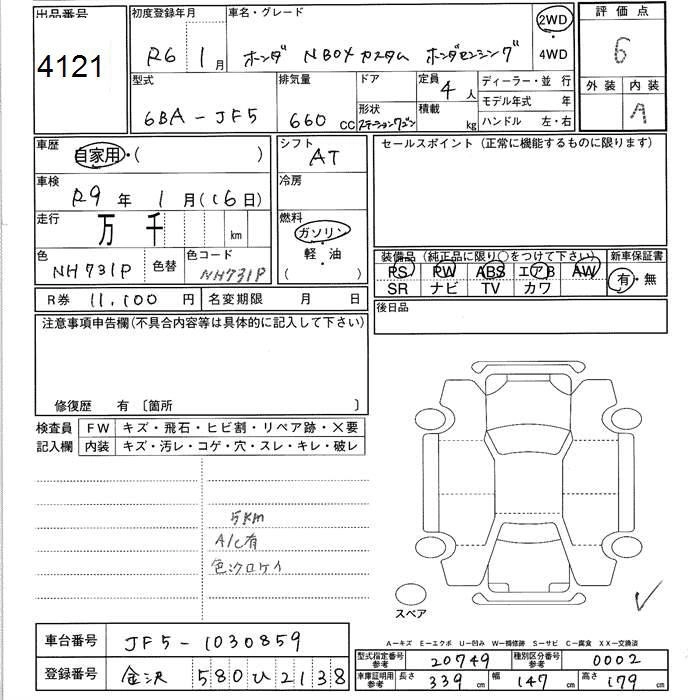 出品番号
4121
初度登録年月
R6 1月
車名・グレード
ホンダ NBOXカスタム ホンダセンシング
2WD
4WD
評価点
6
外装 内装
A
型式
6BA-JF5
排気量
660 cc
ドア
形状
ステーションワゴン
定員 4人
積載 kg
ディーラー・並 行
モデル年式 年
ハンドル 左・右
車歴
自家用・( )
車検
R9年 1月(16日)
走行
万 千 km
色
NH731P
色替
色コード
NH731P
R券 11,100 円
名変期限 月 日
シフト
AT
冷房
燃料
ガソリン
軽・油
( )
セールスポイント (正常に機能するものに限ります)
装備品 (純正品に限り○をつけて下さい)
PS PW ABS エアB AW
SR ナビ TV カワ
新車保証書
有・無
後日品
注意事項申告欄(不具合内容等は具体的に記入して下さい)
修復歴 有 〔箇所 〕
検査員
記入欄
FW キズ・飛石・ヒビ割・リペア跡・×要
内装 キズ・汚レ・コゲ・穴・スレ・キレ・破レ
5km
A/C有
色クロケイ
スペア
車台番号 JF5-1030859
登録番号 金沢 580 ひ 2138
A-キズ E-エクボ U-凹み W-補修跡 S-サビ C-腐食 XX-交換済
型式指定番号 参考 20749
種別区分番号 参考 0002
車庫証明用 参考 長さ 339 cm 幅 147 cm 高さ 179 cm